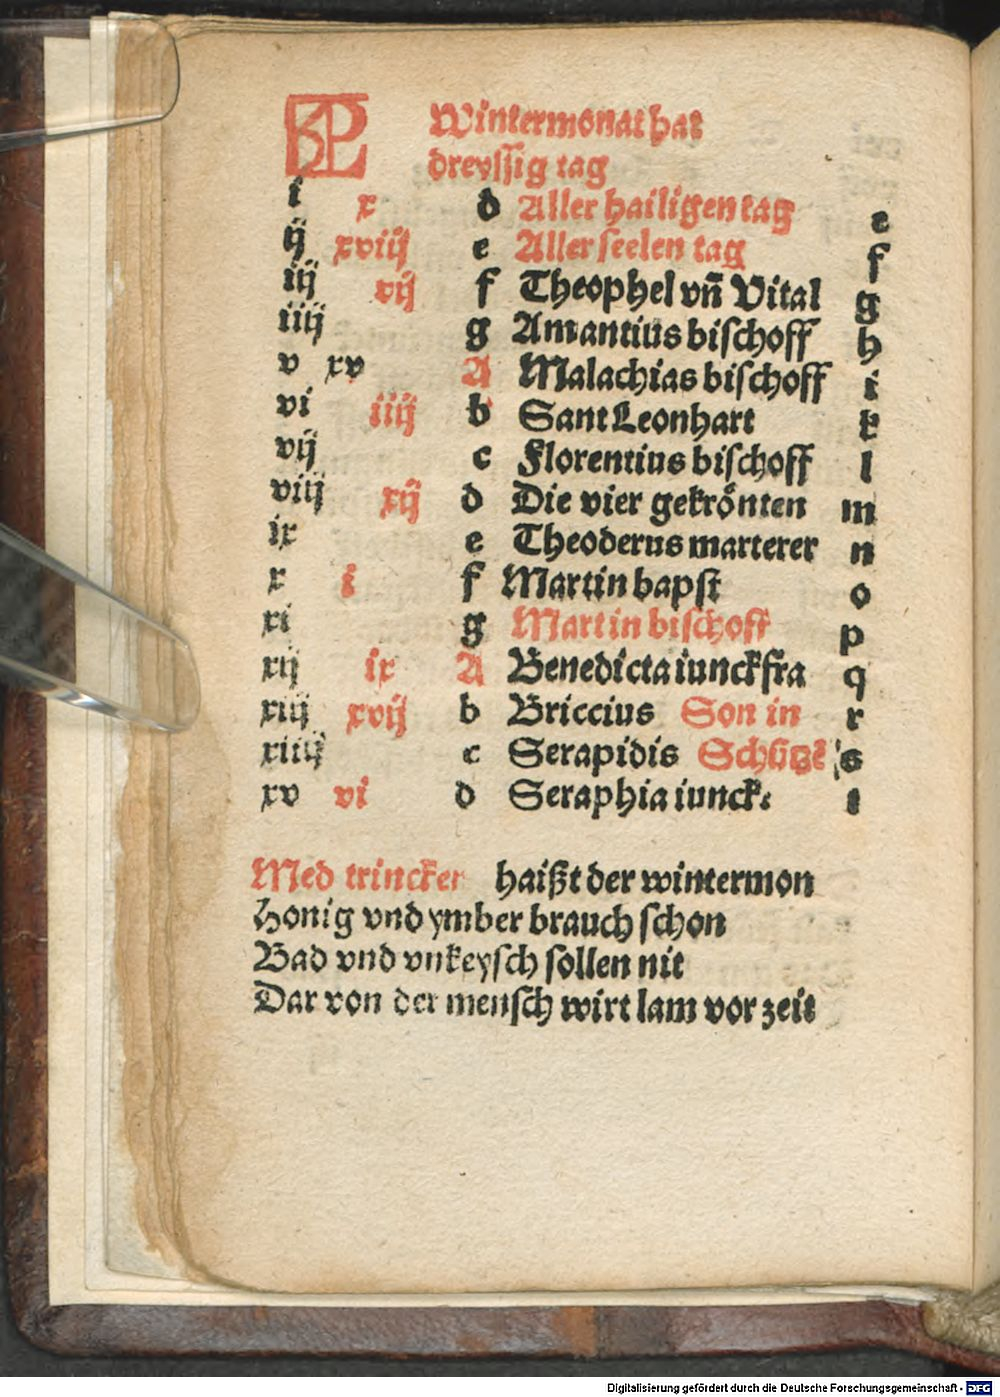 KL Wintermonat hat
dreyſſig tag
i x d Aller hailigen tag e
ij xviij e Aller ſeelen tag f
iij vij f Theophel vñ Vital g
iiij g Amantius biſchoff h
v xv A Malachias biſchoff i
vi iiij b Sant Leonhart k
vij c Florentius biſchoff l
viij xij d Die vier gekrönten m
ix e Theoderus marterer n
x i f Martin bapſt o
xi g Martin biſchoff p
xij ix A Benedicta iunckfra q
xiij xvij b Briccius Son in r
xiiij c Serapidis Schützē s
xv vi d Seraphia iunck: t
Med trincken haißt der wintermon
Honig vnd ymber brauch ſchon
Bad vnd vnkeyſch ſollen nit
Dar von der menſch wirt lam vor zeit
Digitalisierung gefördert durch die Deutsche Forschungsgemeinschaft - DFG